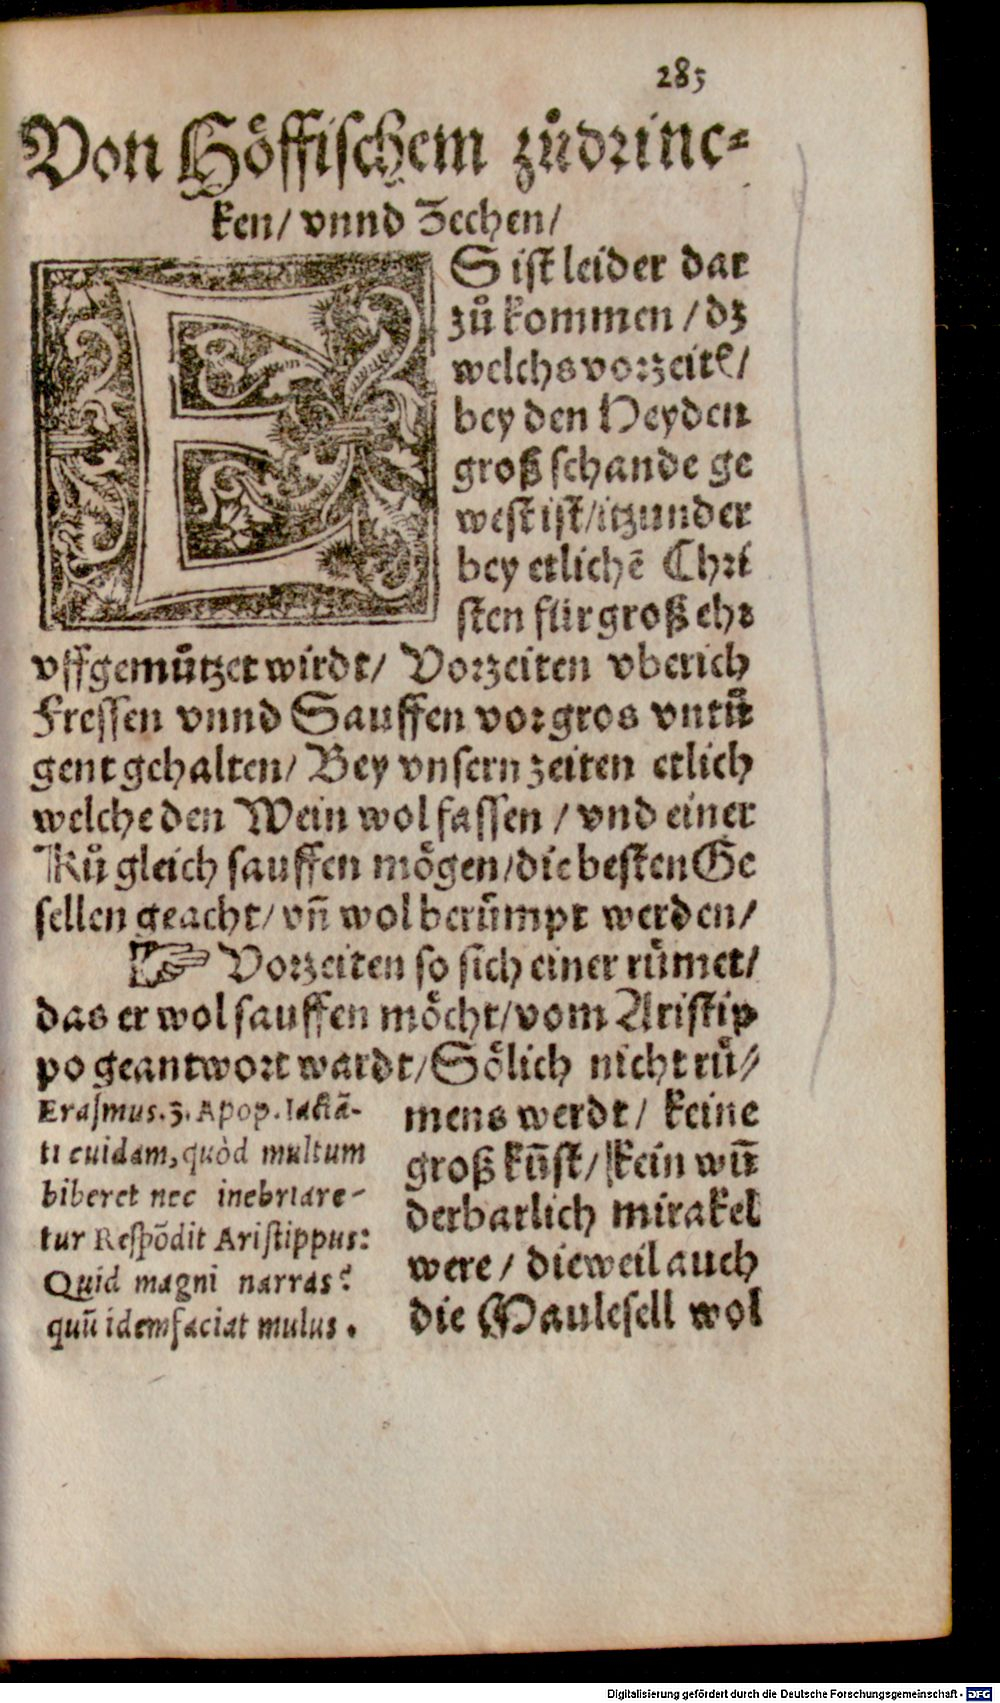 285
Von Höffischem zůdrinc⸗
ken/ vnnd Zechen/
ES ist leider dar
zů kommen / dz
welchs vorzeitē/
bey den Heyden
groß schande ge
west ist/itzunder
bey etlichē Chri
sten für groß ehr
vffgemützet wirdt/ Vorzeiten vberich
Fressen vnnd Sauffen vor gros vntü
gent gehalten/ Bey vnsern zeiten etlich
welche den Wein wol fassen / vnd einer
Ků gleich sauffen mögen/die besten Ge
sellen geacht/ vñ wol berümpt werden/
☞ Vorzeiten so sich einer rümet/
das er wol sauffen möcht/vom Aristip
po geantwort wardt/Sölich nicht rů⸗
mens werdt / keine
groß kũst/ kein wũ
derbarlich mirakel
were / dieweil auch
die Maulesell wol
Erasmus.3. Apop. Iactā-
ti cuidam, quòd multum
biberet nec inebriare-
tur Respōdit Aristippus:
Quid magni narras?
quū idem faciat mulus.
Digitalisierung gefördert durch die Deutsche Forschungsgemeinschaft - DFG